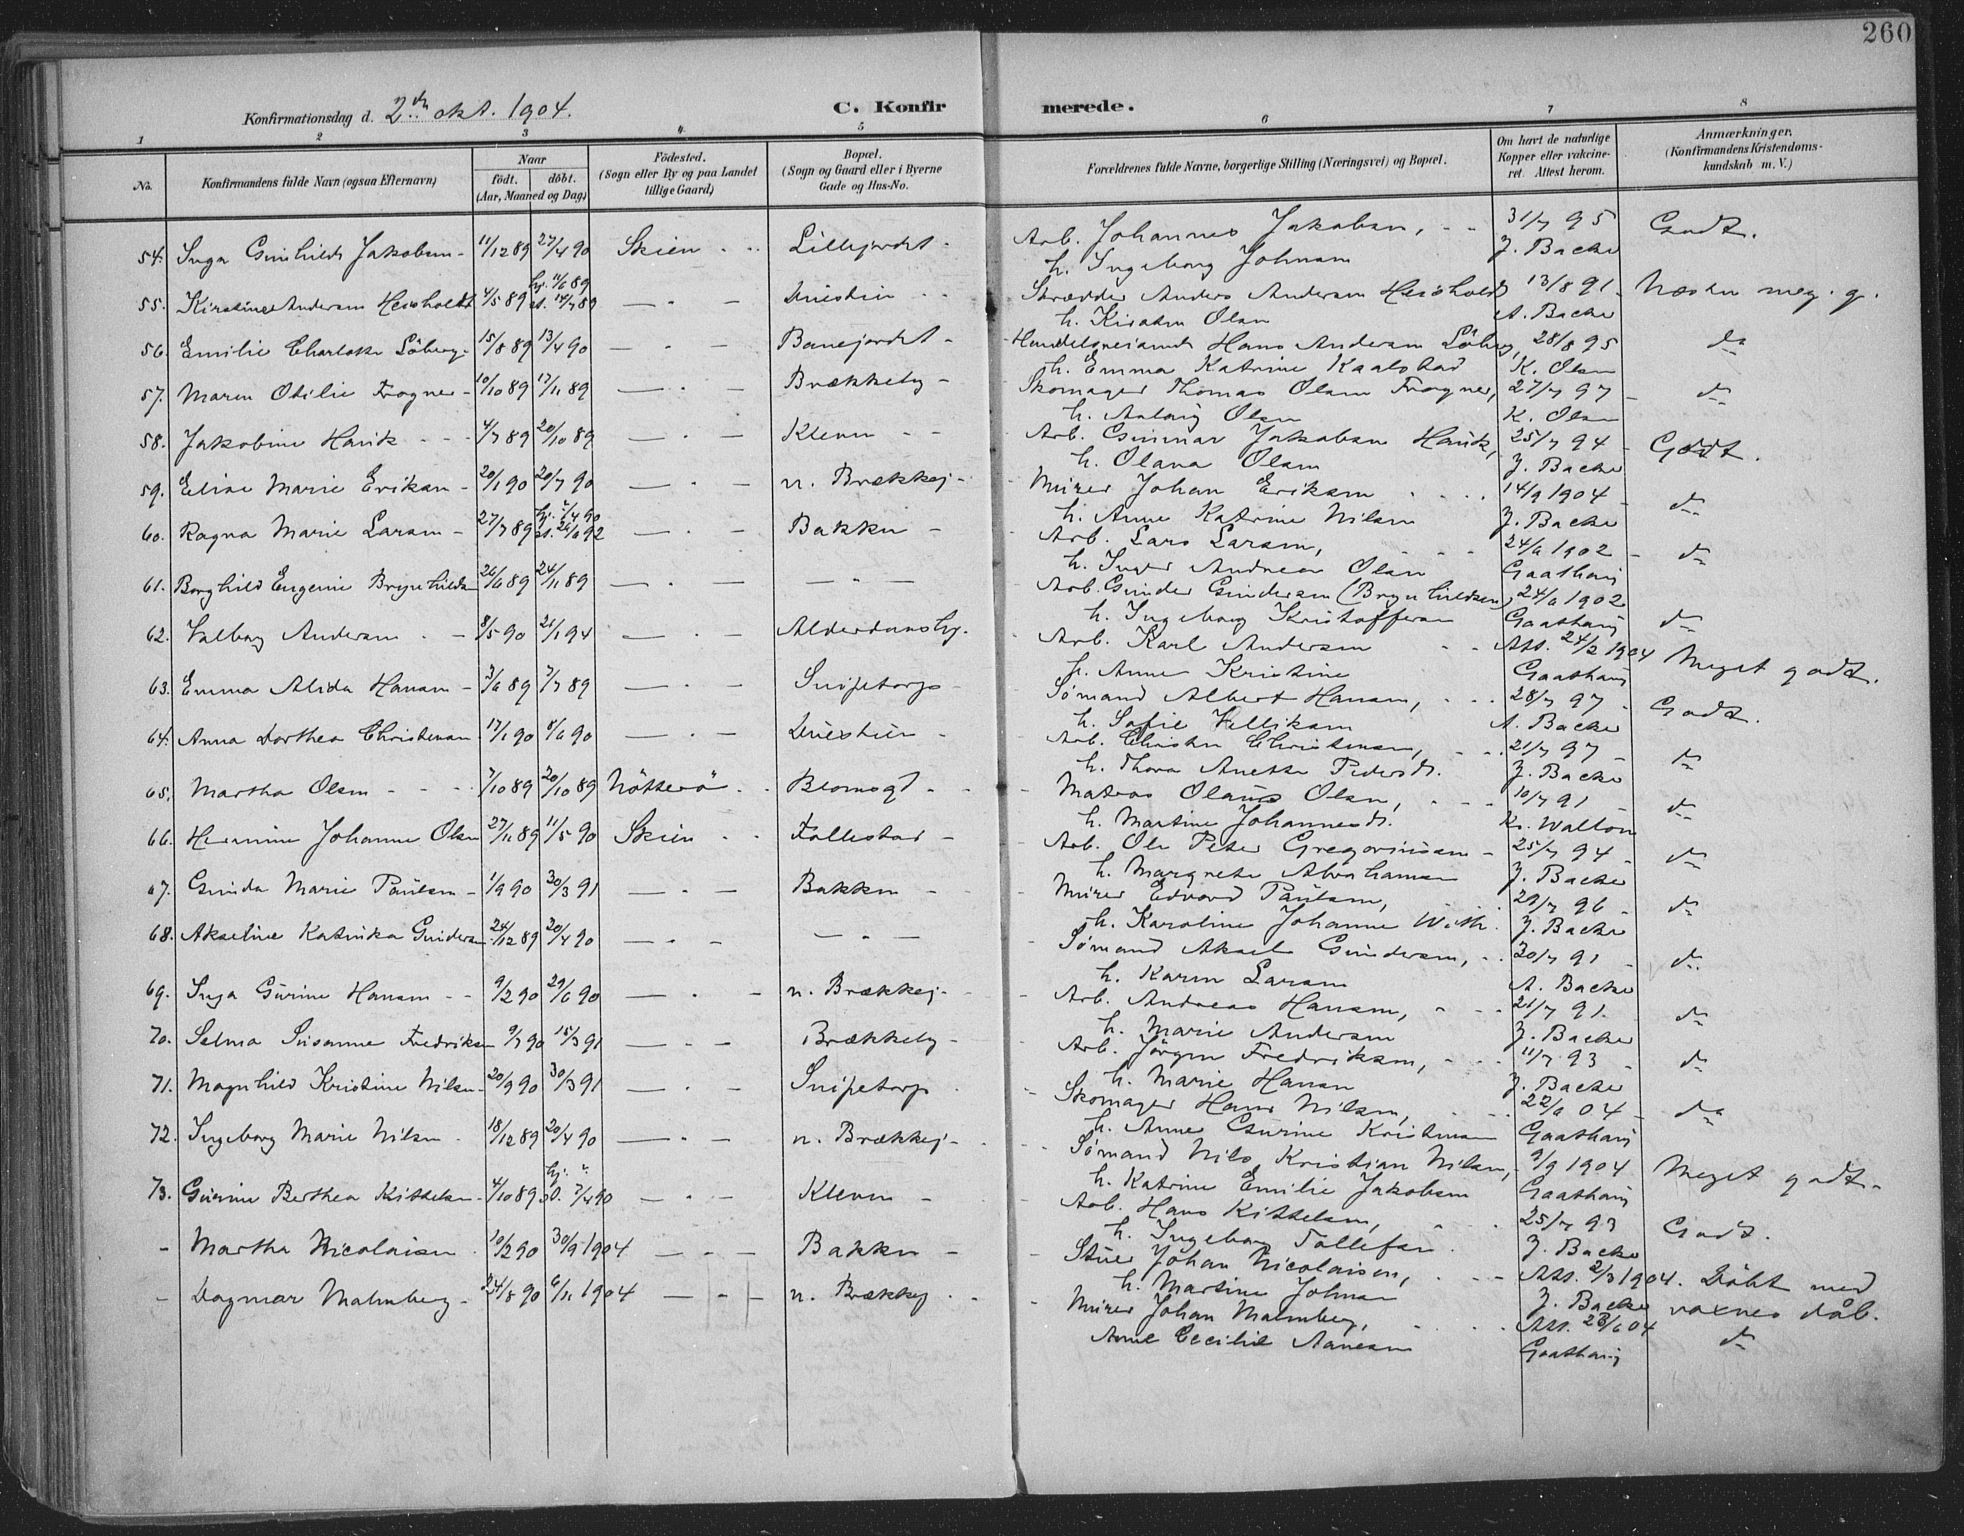 260
Konfirmationsdag d. 2den okt. 1904.
C. Konfirmerede.
1 2 3 4 5 6 7 8
No. Konfirmandens fulde Navn (ogsaa Efternavn) Naar födt. döbt. (Aar, Maaned og Dag) Födested. (Sogn eller By og paa Landet tillige Gaard) Bopæl. (Sogn og Gaard eller i Byerne Gade og Hus-No. Forældrenes fulde Navne, borgerlige Stilling (Næringsvei) og Bopæl. Om havt de naturlige Kopper eller vakcineret. Attest herom. Anmærkninger. (Konfirmandens Kristendomskundskab m. V.)
54. Inga Gunhilde Jakobsen - 11/12 89 27/4 90 Skien Lillejordet - Arb. Johannes Jakobsen, 31/7 95 Godt.
h. Ingeborg Johnsen J. Backe
55. Kirstine Andersen Hesholdt 4/5 89 hj. 11/6 89 st. 14/7 89 — . — Duestien Skrædder Anders Andersen Hesholdt 13/8 91 - Næsten meg. g.
h. Kirsten Olsen A. Backe
56. Emilie Charlotte Löberg - 15/8 89 13/4 90 — . — Banejordet - Handelsreisende Hans Andersen Löberg, 28/8 95 do
h. Emma Katrine Kaalstad K. Olsen
57. Maren Otilie Frogner - 10/10 89 17/11 89 — . — Brækkeby - Skomager Thomas Olsen Frogner, 27/7 97 - do
h. Aslaug Olsen K. Olsen
58. Jakobine Hauk - - - 4/7 89 20/10 89 — . — Kleven - - Arb. Gunnar Jakobsen Hauk, 25/7 94 - Godt.
h. Olava Olsen J. Backe
59. Elise Marie Eriksen - 20/1 90 20/7 90 — . — n. Brækkej - Murer Johan Eriksen 14/9 1904 - do
h. Anne Katrine Nilsen J. Backe
60. Ragna Marie Larsen - 27/7 89 hj. 7/4 90 st. 26/6 92 — . — Bakken - Arb. Lars Larsen, 24/6 1902 - do
h. Inger Andrea Olsen Gaathaug
61. Borghild Eugenie Brynhilds 26/6 89 24/11 89 — . — — " — Arb. Gunder Gundersen (Brynhildsen) 24/6 1902
h. Ingeborg Kristoffersen Gaathaug do
62. Valborg Andersen - 8/5 90 21/1 94 — . — Alderdomshj. Arb. Karl Andersen Att. 24/2 1904 Meget godt.
h. Anne Kristine Gaathaug
63. Emma Alida Hansen - 3/6 89 7/7 89 — . — Snipetorp - Sømand Albert Hansen, 28/7 97 - Godt.
h. Sofie A. Backe
64. Anna Dorthea Christensen 17/1 90 8/6 90 — . — Duestien - Arb. Christen Christensen, 21/7 97 - do
h. Thora Anette Pedersdt. J. Backe
65. Martha Olsen - - - 7/10 89 20/10 89 Nötterö Blomsgd - Matros Olaus Olsen, 10/7 91 - do
h. Martine Johannesdt. K. Walton
66. Hermine Johanne Olsen 27/11 89 11/5 90 Skien Follestad - Arb. Ole Peter Gregoriusen - 25/7 94 - do
h. Margrete Abrahamsen J. Backe
67. Gunda Marie Paulsen - 1/9 90 30/3 91 — . — Bakken - Murer Edvard Paulsen, 29/7 96 - do
h. Karoline Johanne With. J. Backe
68. Akseline Katinka Gundersen 24/12 89 20/4 90 — . — — " — Sømand Aksel Gundersen, 30/7 91 - do.
h. Karen Larsen A. Backe
69. Inga Gurine Hansen - - 9/2 90 29/6 90 — . — n. Brækkej - Arb. Andreas Hansen, 21/7 91. do
h. Marie Andersen J. Backe
70. Selma Susanne Fredriksen 9/7 90 15/3 91 — . — Brækkeby - Arb. Jörgen Fredriksen, 11/7 93 - do
h. Marie Hansen J. Backe
71. Magnhild Kristine Nilsen - 20/9 90 30/3 91 — . — Snipetorp Skomager Hans Nilsen, 22/6 04 - do
h. Anne Gurine Kristensen Gaathaug
72. Ingeborg Marie Nilsen 18/12 89 20/4 90 — . — n. Brækkej - Sømand Nils Kristian Nilsen, 9/9 1904 Meget godt -
h. Katrine Emilie Jakobsen Gaathaug
73. Gurine Berthea Kittelsen - 4/10 89 hj. " 7/4 90 — . — Kleven - Arb. Hans Kittelsen, 25/7 93 Godt.
h. Ingeborg Tollefsen J. Backe
- Martha Nicolaisen 10/2 90 30/9 1904 — . — Bakken - Stuer Johan Nicolaisen, Att. 2/3 1904. Döbt med
h. Martine Johnsen J. Backe voxnes dåb.
- Dagmar Malmberg - 24/8 90 6/11 1904 — . — n. Brækkej Murer Johan Malmberg, Att. 28/6 04 do
Anne Cecilie Aanesen Gaathaug